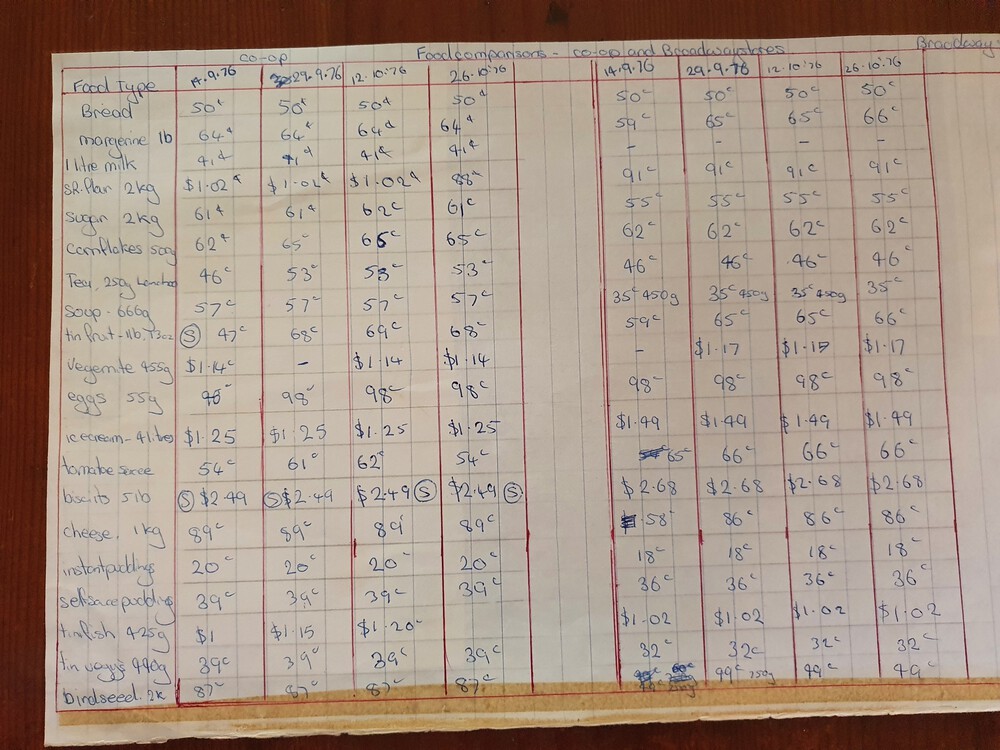 co-op Food comparisons - co-op and Broadway stores Broadway
Food Type 14.9.76 29.9.76 12.10.76 26.10.76 14.9.76 29.9.76 12.10.76 26.10.76
Bread 50c 50c 50c 50c 50c 50c 50c 50c
margerine 1lb 64c 64c 64c 64c 59c 65c 65c 66c
1 litre milk 41c 41c 41c 41c - - - -
SR. Plan 2kg $1.02c $1.02c $1.02c 88c 91c 91c 91c 91c
Sugar 2kg 61c 61c 62c 61c 55c 55c 55c 55c
Cornflakes 500g 62c 65c 65c 65c 62c 62c 62c 62c
Tea, 250g 46c 53c 53c 53c 46c 46c 46c 46c
Soup - 666g 57c 57c 57c 57c 35c 450g 35c 450g 35c 450g 35c
tin fruit - 1lb, 13oz S 47c 68c 69c 68c 59c 65c 65c 66c
Vegemite 455g $1.14c - $1.14 $1.14 - $1.17 $1.17 $1.17
eggs 55g 98c 98c 98c 98c 98c 98c 98c
icecream - 4 litres $1.25 $1.25 $1.25 $1.25 $1.49 $1.49 $1.49 $1.49
tomatoe sauce 54c 61c 62c 54c 65c 66c 66c 66c
biscits 5lb S $2.49 S $2.49 $2.49 S $2.49 S $2.68 $2.68 $2.68 $2.68
cheese, 1kg 89c 89c 89c 89c .58c 86c 86c 86c
instant puddings 20c 20c 20c 20c 18c 18c 18c 18c
self-sauce puddings 39c 39c 39c 39c 36c 36c 36c 36c
tin fish 425g $1 $1.15 $1.20c $1.02 $1.02 $1.02 $1.02
tin veggs 440g 39c 39c 39c 39c 32c 32c 32c 32c
birdseed. 2k 87c 87c 87c 87c 49c 49c